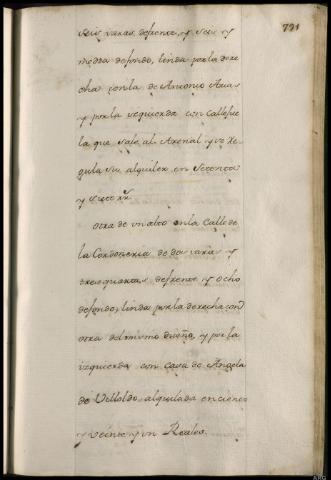 791
seis varas, defrente, y seis y
media defondo, linda por la dere
cha con la de Antonio Arias
y por la izquierda con Callejue
la que sale al Arenal y se Re
gula su alquiler en Setenta
y siete rr.
otra de un alto en la Calle de
la Cordoneria de dos varas y
tresquartas defrente y ocho
defondo, linda por la derecha con
otra del mismo dueño, y por la
izquierda con Casa de Angela
de Villoldo, alquilada en ciento
y veinte y un Reales.
ARG